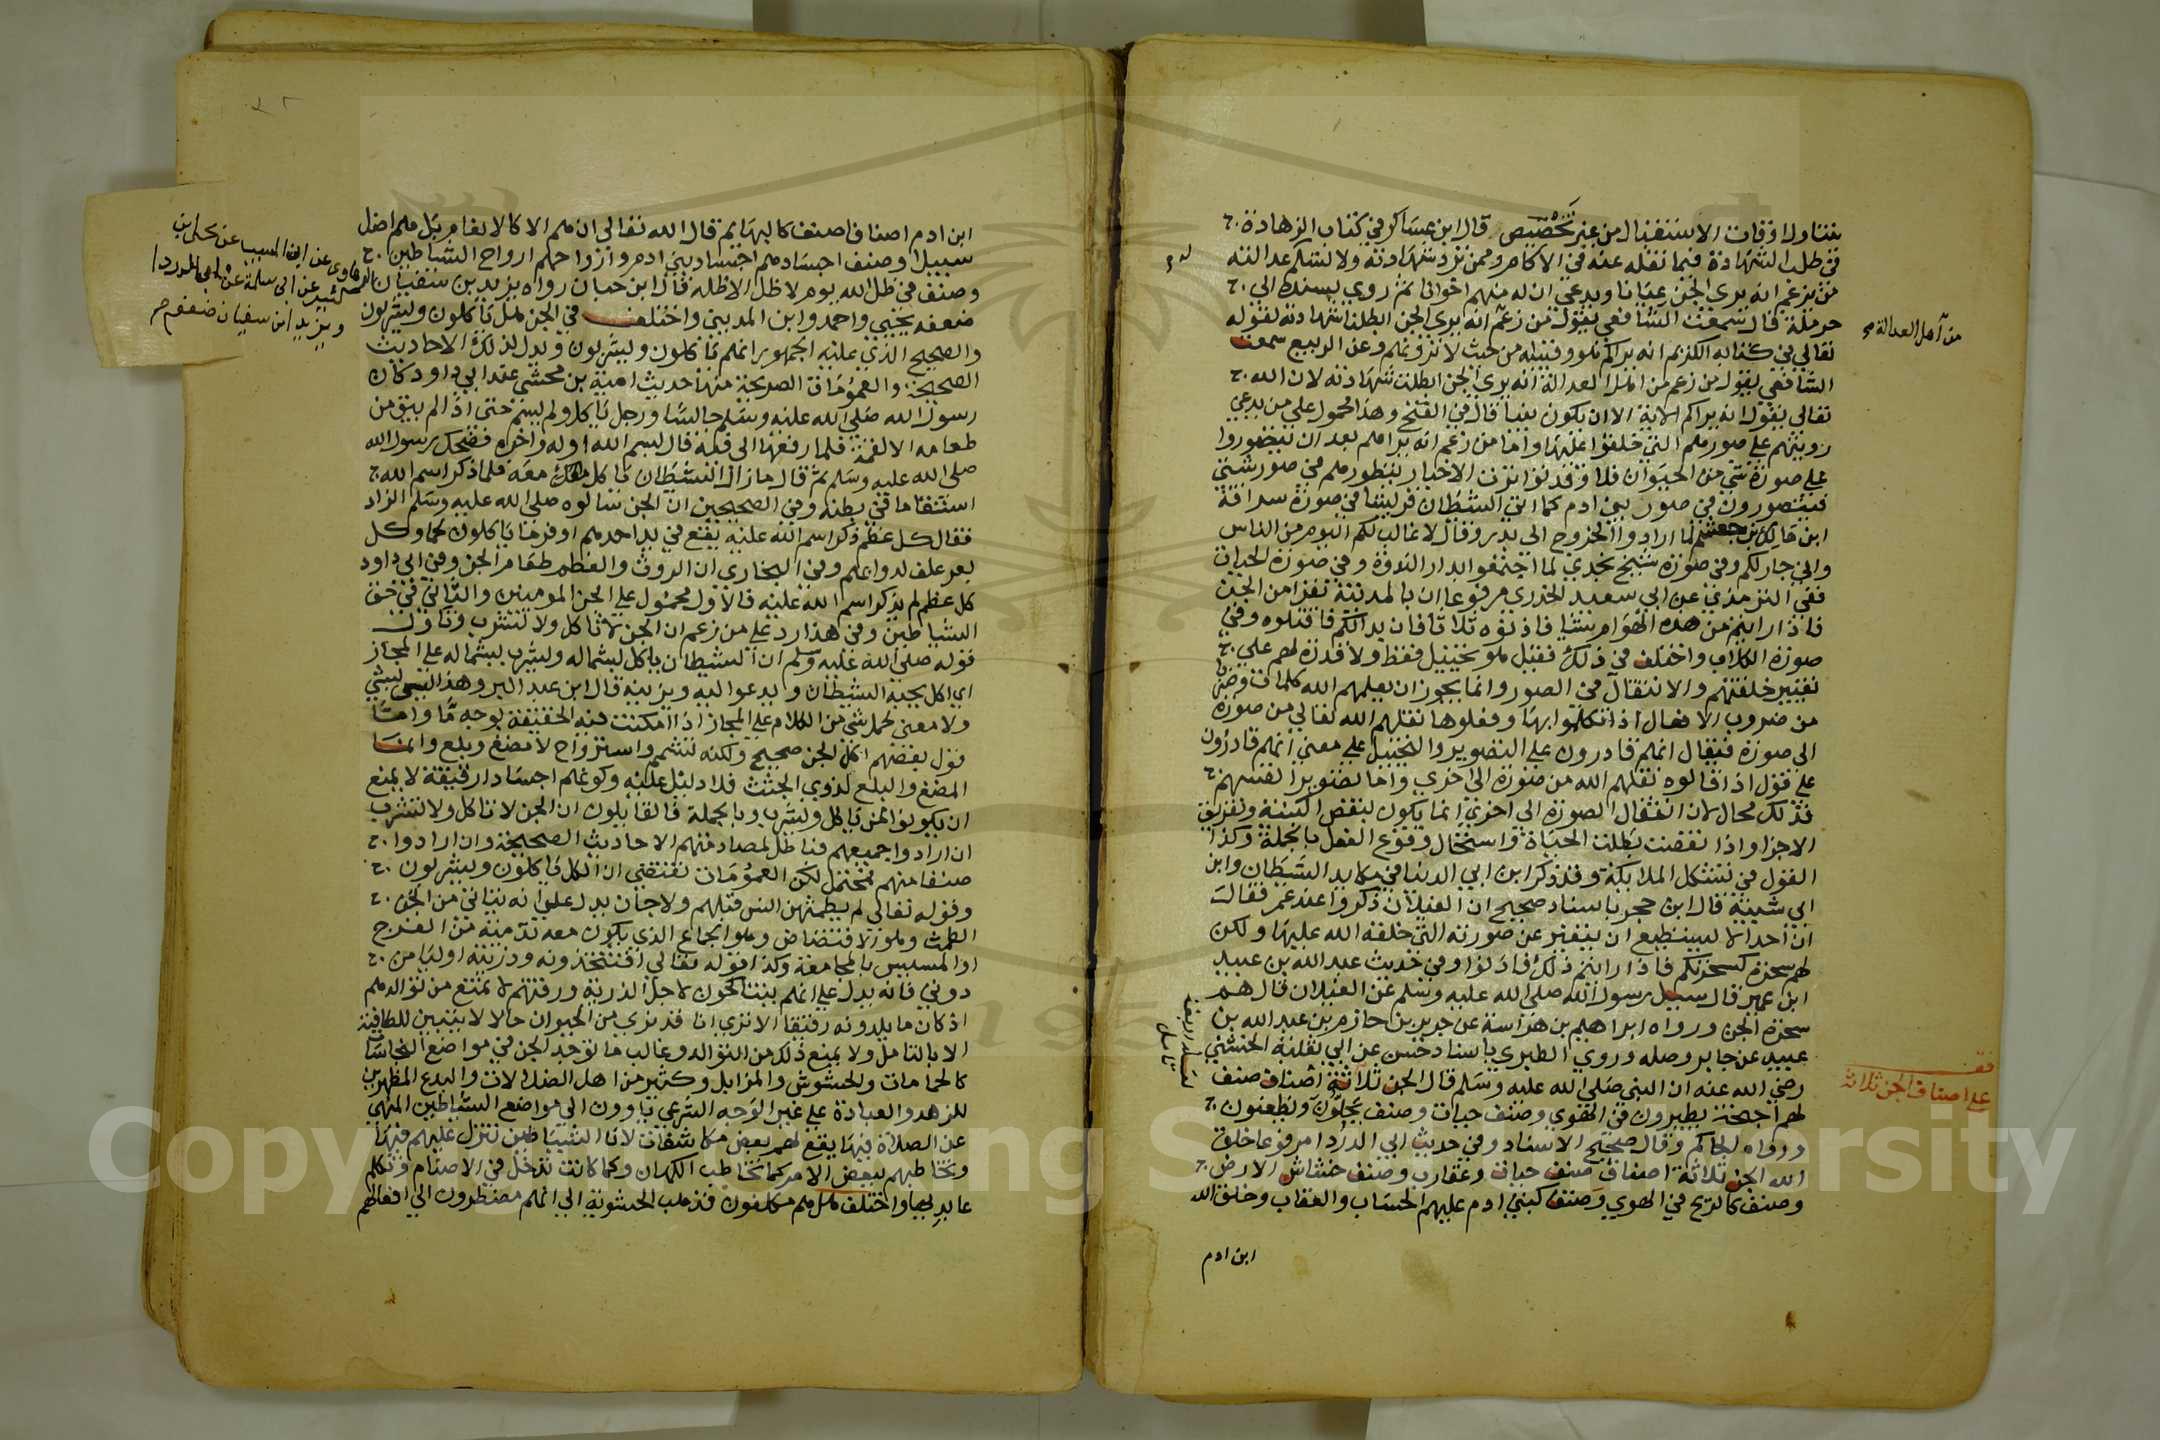 يتناول اوقات الاستقبال من غير تخصيص قال ابن عساكر في كتاب الزهادة
في طلب الشهادة فيما نقله عنه في الاكام وممن ترد شهادته ولا تسلم عدالته
من يزعم انه يري الجن عيانا ويدعي ان له منهم اخوانا ثم روي بسنده الي
حرملة قال سمعت الشافعي يقول من زعم انه يري الجن ابطلنا شهادته لقوله
تعالي في كتابه الكريم انه يراكم هو وقبيله من حيث لا ترونهم وعن الربيع سمعت
الشافعي يقول من زعم من اهل العدالة انه يري الجن ابطلت شهادته لان الله
تعالي يقول انه يراكم الاية الا ان يكون نبيا قال في الفتح وهذا محمول علي من يدعي
رويتهم علي صورهم التي خلقوا عليها واما من زعم انه يراهم بعد ان يتصوروا
علي صورة شي من الحيوان فلا وقد تواترت الاخبار بتطورهم في صور شتي
فيتصورون في صور بني ادم كما اتي الشيطان قريشا في صورة سراقة
ابن مالك بن جعشم لما ارادوا الخروج الي بدر وقال لا غالب لكم اليوم من الناس
واني جار لكم وفي صورة شيخ نجدي لما اجتمعوا بدار الندوة وفي صورة الحيات
ففي الترمذي عن ابي سعيد الخدري مرفوعا ان بالمدينة نفرا من الجن
فاذا رايتم من هذه الهوام شيئا فاذنوه ثلاثا فان بدا لكم فاقتلوه وفي
صورة الكلاب واختلف في ذلك فقيل هو تخييل فقط ولا قدرة لهم علي
تغيير خلقتهم والانتقال في الصور وانما يجوز ان يعلمهم الله كلمات وضربا
من ضروب الافعال اذا تكلموا بها وفعلوها نقلهم الله تعالي من صورة
الي صورة فيقال انهم قادرون علي التصوير والتخييل علي معني انهم قادرون
علي قول اذا قالوه نقلهم الله من صورة الي اخري واما تصوير انفسهم
فذلك محال لان انتقال الصورة الي اخري انما يكون بنقض البنية وتفريق
الاجزا واذا نقضت بطلت الحياة واستحال وقوع الفعل بالجملة وكذا
القول في تشكل الملايكة وقد ذكر ابن ابي الدنيا في مكايد الشيطان وابن
ابي شيبة قال ابن حجر باسناد صحيح ان الغيلان ذكروا عند عمر فقال
ان احدا لا يستطيع ان يتغير عن صورته التي خلقه الله عليها ولكن
لهم سحرة كسحرتكم فاذا رايتم ذلك فاذنوا وفي حديث عبد الله بن عبيد
ابن عمير قال سيل رسول الله صلي الله عليه وسلم عن الغيلان قال هم
سحرة الجن ورواه ابراهيم بن هراسة عن جرير بن حازم بن عبد الله بن
عبيد عن جابر وصله وروي الطبري باسناد حسن عن ابي ثعلبة الخشني
رضي الله عنه ان النبي صلي الله عليه وسلم قال الجن ثلاثة اصناف صنف
لهم اجنحة يطيرون في الهوي وصنف حيات وصنف يحلون ويظعنون
ورواه الحاكم وقال صحيح الاسناد وفي حديث ابي الدردا مرفوعا خلق
الله الجن ثلاثة اصناف صنف حيات وعقارب وصنف خشاش الارض
وصنف كالريح في الهوي وصنف كبني ادم عليهم الحساب والعقاب وخلق الله
ابن ادم
من اهل العدالة
قف
علي اصناف الجن ثلاثة
ابن ادم اصنافا صنف كالبهايم قال الله تعالي ان هم الا كالانعام بل هم اضل
سبيلا وصنف اجسادهم اجساد بني ادم وارواحهم ارواح الشياطين
وصنف في ظل الله يوم لا ظل الا ظله قال ابن حبان رواه يزيد بن سفيان
ضعفه يحيي واحمد وابن المديني واختلف في الجن هل ياكلون ويشربون
والصحيح الذي عليه الجمهور انهم ياكلون ويشربون ويدل لذلك الاحاديث
الصحيحة والعمومات الصريحة منها حديث امية بن مخشي عند ابي داود كان
رسول الله صلي الله عليه وسلم جالسا ورجل ياكل ولم يسم حتي اذا لم يبق من
طعامه الا لقمة فلما رفعها الي فيه قال بسم الله اوله واخره فضحك رسول الله
صلي الله عليه وسلم ثم قال ما زال الشيطان ياكل معه فلما ذكر اسم الله
استقا ما في بطنه وفي الصحيحين ان الجن سالوه صلي الله عليه وسلم الزاد
فقال كل عظم ذكر اسم الله عليه يقع في يد احدهم اوفر ما ياكلون لحما وكل
بعر علف لدوابهم وفي البخاري ان الروث والعظم طعام الجن وفي ابي داود
كل عظم لم يذكر اسم الله عليه فالاول محمول علي الجن المومنين والثاني في حق
الشياطين وفي هذا رد علي من زعم ان الجن لا تاكل ولا تشرب وتاول
قوله صلي الله عليه وسلم ان الشيطان ياكل بشماله ويشرب بشماله علي المجاز
اي اكل يحبه الشيطان ويدعو اليه ويزينه قال ابن عبد البر وهذا ليس بشي
ولا معني لحمل شي من الكلام علي المجاز اذا امكنت فيه الحقيقة بوجه ما واما
قول بعضهم اكل الجن صحيح ولكنه تشمم واسترواح لا مضغ وبلع وانما
المضغ والبلع لذوي الجثث فلا دليل عليه وكونهم اجسادا رقيقة لا يمنع
ان يكونوا ممن ياكل ويشرب وبالجملة فالقايلون ان الجن لا تاكل ولا تشرب
ان ارادوا جميعهم فباطل لمصادمتهم الاحاديث الصحيحة وان ارادوا
صنفا منهم فمحتمل لكن العمومات تقتضي ان الكل ياكلون ويشربون
وقوله تعالي لم يطمثهن انس قبلهم ولا جان يدل علي انه يتاتي من الجن
الطمث وهو الافتضاض وهو الجماع الذي يكون معه تدمية من الفرج
او المسيس بالمجامعة وكذا قوله تعالي افتتخذونه وذريته اوليا من
دوني فانه يدل علي انهم يتناكحون لاجل الذرية ورقتهم لا تمنع من توالدهم
اذ كان ما يلدونه رقيقا الا تري انا قد نري من الحيوان حالا لا يتبين للطافته
الا بالتامل ولا يمنع ذلك من التوالد وغالب ما توجد الجن في مواضع النجاسات
كالحمامات والحشوش والمزابل وكثير من اهل الضلالات والبدع المظهرين
للزهد والعبادة علي غير الوجه الشرعي ياوون الي مواضع الشياطين المنهي
عن الصلاة فيها يقع لهم بعض مكاشفات لان الشياطين تنزل عليهم فيها
وتخاطبهم ببعض الامر كما تخاطب الكهان وكما كانت تدخل في الاصنام وتكلم
عابديها واختلف هل هم مكلفون فذهب الحشوية الي انهم مضطرون الي افعالهم
ويزيد ابن سفيان ضعفهم
Copyright © King Saud University
1957